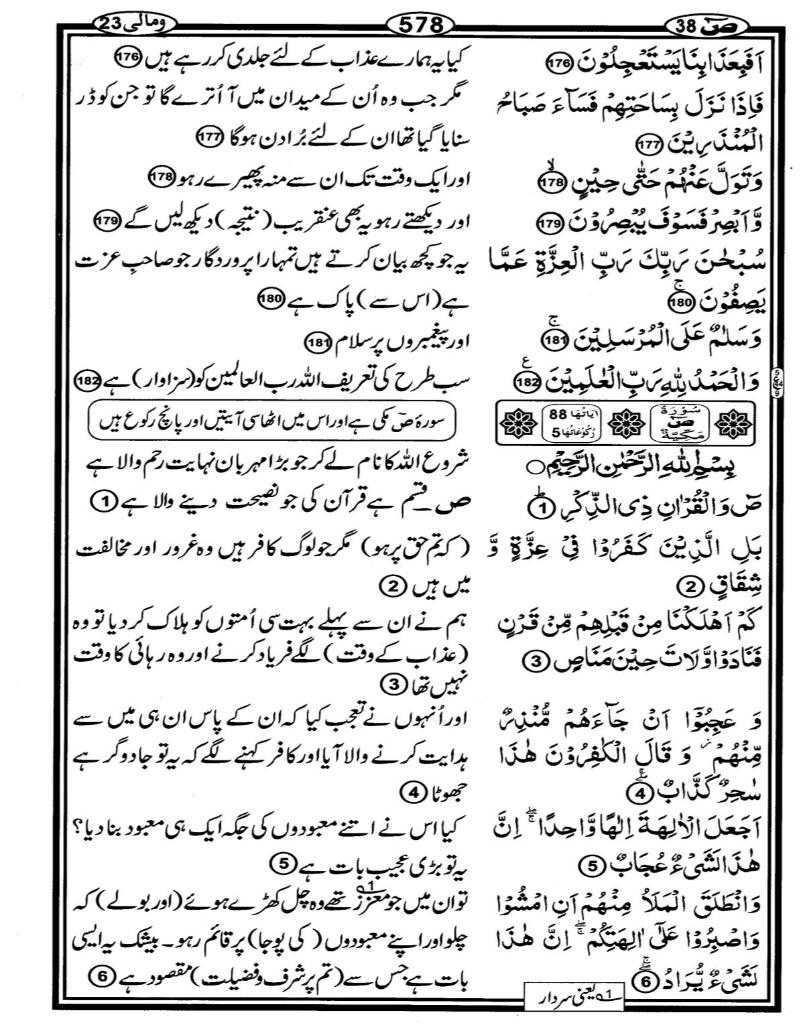 صٓ 38
578
ومالی 23
اَفَبِعَذَابِنَا يَسْتَعْجِلُوْنَ 176
فَاِذَا نَزَلَ بِسَاحَتِهِمْ فَسَآءَ صَبَاحُ
الْمُنْذَرِيْنَ 177
وَتَوَلَّ عَنْهُمْ حَتّٰى حِيْنٍ ۙ 178
وَّاَبْصِرْ فَسَوْفَ يُبْصِرُوْنَ 179
سُبْحٰنَ رَبِّكَ رَبِّ الْعِزَّةِ عَمَّا
يَصِفُوْنَ ۚ 180
وَسَلٰمٌ عَلَى الْمُرْسَلِيْنَ ۚ 181
وَالْحَمْدُ لِلّٰهِ رَبِّ الْعٰلَمِيْنَ ع 182
کیا یہ ہمارے عذاب کے لئے جلدی کر رہے ہیں 176
مگر جب وہ اُن کے میدان میں آ اُترے گا تو جن کو ڈر
سنایا گیا تھا ان کے لئے بُرا دن ہوگا 177
اور ایک وقت تک ان سے منہ پھیرے رہو 178
اور دیکھتے رہو یہ بھی عنقریب (نتیجہ) دیکھ لیں گے 179
یہ جو کچھ بیان کرتے ہیں تمہارا پروردگار جو صاحبِ عزت
ہے (اس سے) پاک ہے 180
اور پیغمبروں پر سلام 181
سب طرح کی تعریف اللہ رب العالمین کو (سزاوار) ہے 182
سُوْرَةُ صٓ مَكِّيَّةٌ
اٰيَاتُهَا 88
رُكُوْعَاتُهَا 5
سورۂ صٓ مکی ہے اور اس میں اٹھاسی آیتیں اور پانچ رکوع ہیں
بِسْمِ اللّٰهِ الرَّحْمٰنِ الرَّحِيْمِ ○
صٓ وَالْقُرْاٰنِ ذِى الذِّكْرِ ؕ 1
بَلِ الَّذِيْنَ كَفَرُوْا فِىْ عِزَّةٍ وَّ
شِقَاقٍ 2
كَمْ اَهْلَكْنَا مِنْ قَبْلِهِمْ مِّنْ قَرْنٍ
فَنَادَوْا وَّلَاتَ حِيْنَ مَنَاصٍ 3
وَ عَجِبُوْۤا اَنْ جَآءَهُمْ مُّنْذِرٌ
مِّنْهُمْ ۫ وَ قَالَ الْكٰفِرُوْنَ هٰذَا
سٰحِرٌ كَذَّابٌ ۚۖ 4
اَجَعَلَ الْاٰلِهَةَ اِلٰهًا وَّاحِدًا ۚۖ اِنَّ
هٰذَا لَشَىْءٌ عُجَابٌ 5
وَانْطَلَقَ الْمَلَاُ مِنْهُمْ اَنِ امْشُوْا
وَاصْبِرُوْا عَلٰۤى اٰلِهَتِكُمْ ۚۖ اِنَّ هٰذَا
لَشَىْءٌ يُّرَادُ ۚۖ 6
شروع اللہ کا نام لے کر جو بڑا مہربان نہایت رحم والا ہے
ص ـ قسم ہے قرآن کی جو نصیحت دینے والا ہے 1
(کہ تم حق پر ہو) مگر جو لوگ کافر ہیں وہ غرور اور مخالفت
میں ہیں 2
ہم نے ان سے پہلے بہت سی اُمتوں کو ہلاک کر دیا تو وہ
(عذاب کے وقت) لگے فریاد کرنے اور وہ رہائی کا وقت
نہیں تھا 3
اور اُنہوں نے تعجب کیا کہ ان کے پاس ان ہی میں سے
ہدایت کرنے والا آیا اور کافر کہنے لگے کہ یہ تو جادوگر ہے
جھوٹا 4
کیا اس نے اتنے معبودوں کی جگہ ایک ہی معبود بنا دیا؟
یہ تو بڑی عجیب بات ہے 5
تو ان میں جو معزز 1 تھے وہ چل کھڑے ہوئے (اور بولے) کہ
چلو اور اپنے معبودوں (کی پوجا) پر قائم رہو۔ بیشک یہ ایسی
بات ہے جس سے (تم پر شرف و فضیلت) مقصود ہے 6
1 یعنی سردار